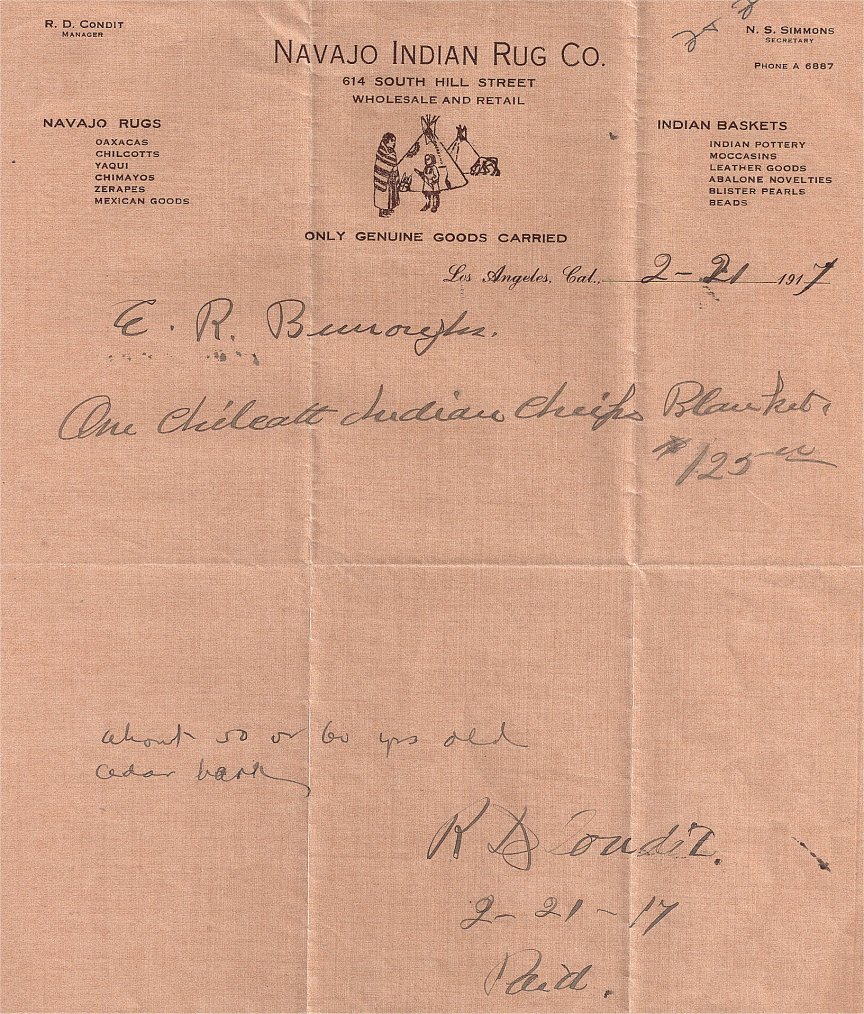 R. D. CONDIT
MANAGER
N. S. SIMMONS
SECRETARY
PHONE A 6887
NAVAJO INDIAN RUG CO.
614 SOUTH HILL STREET
WHOLESALE AND RETAIL
NAVAJO RUGS
OAXACAS
CHILCOTTS
YAQUI
CHIMAYOS
ZERAPES
MEXICAN GOODS
INDIAN BASKETS
INDIAN POTTERY
MOCCASINS
LEATHER GOODS
ABALONE NOVELTIES
BLISTER PEARLS
BEADS
ONLY GENUINE GOODS CARRIED
Los Angeles, Cal., 2-21 1917
E. R. Burroughs.
One Chilcatt Indian Cheifs Blanket.
$125
about 50 or 60 yrs old
cedar bark
R D Condit.
2-21-17
Paid.